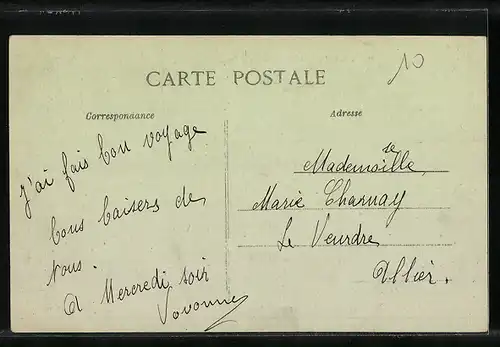 10
CARTE POSTALE
Correspondance
Adresse
J'ai fais bon voyage
bons baisers de
nous.
A Mercredi soir
Yvonne
Mademoiselle
Marie Charnay
Le Veurdre
Allier.